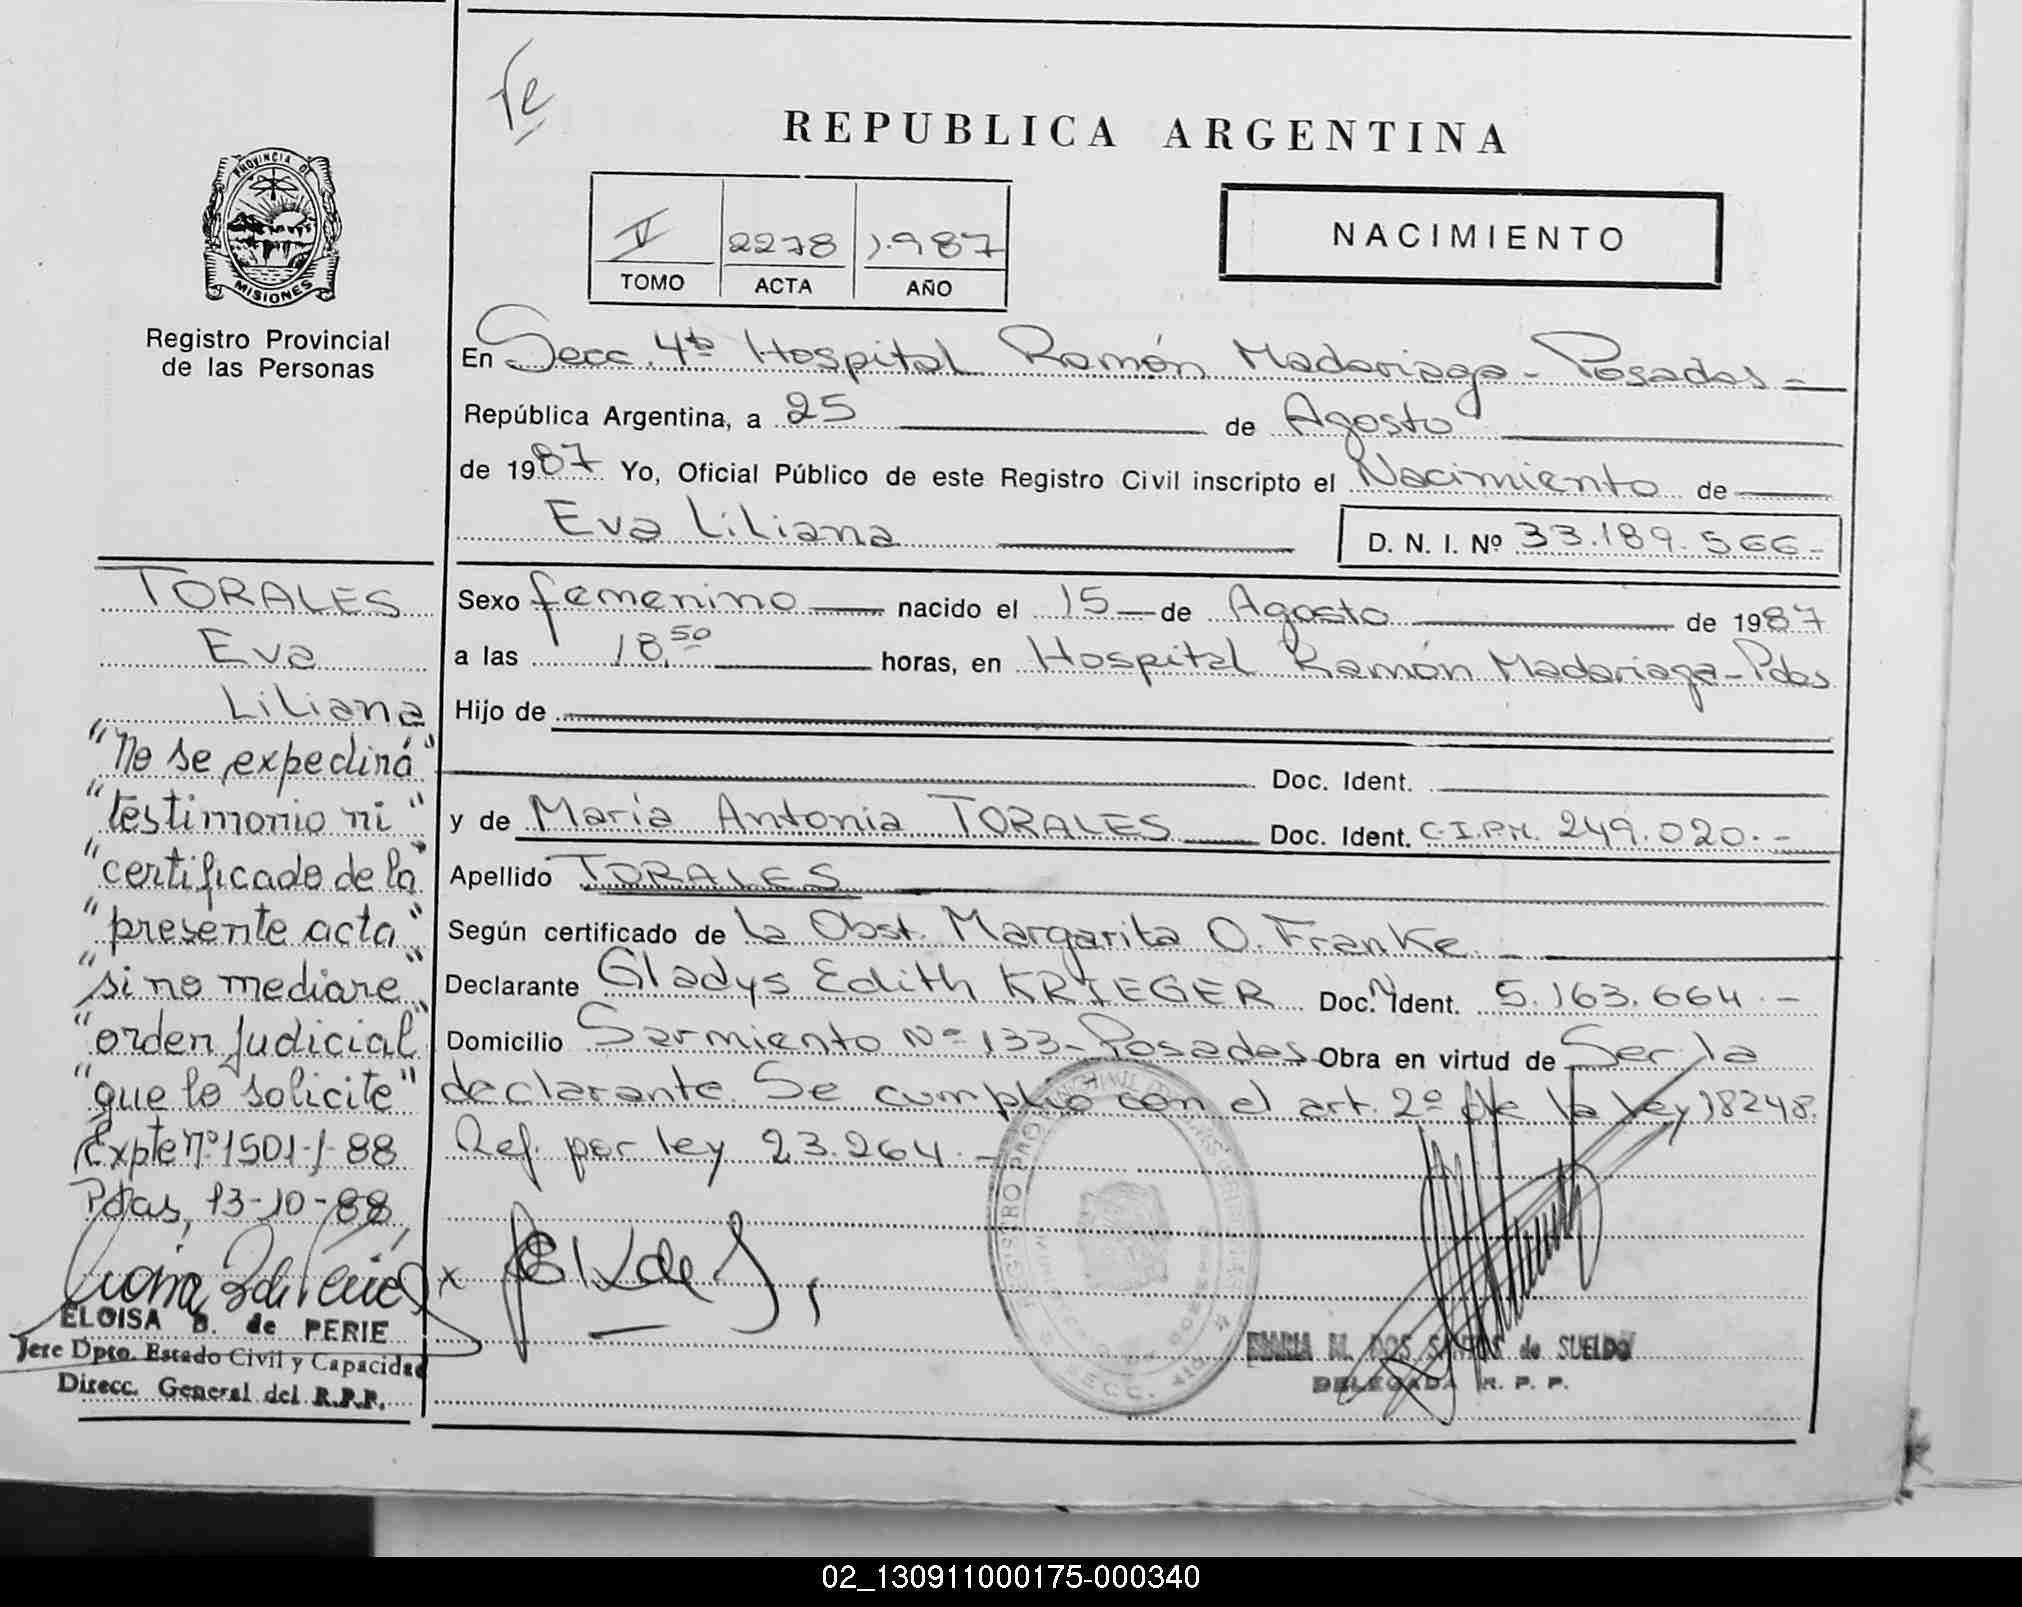 fe
REPUBLICA ARGENTINA
PROVINCIA DE
MISIONES
Registro Provincial
de las Personas
V 2278 1.987
TOMO ACTA AÑO
NACIMIENTO
En Secc. 4ta Hospital Ramón Madariaga - Posadas -
República Argentina, a 25 de Agosto
de 1987 Yo, Oficial Público de este Registro Civil inscripto el Nacimiento de
Eva Liliana D. N. I. Nº 33.189.566-
Sexo femenino nacido el 15 de Agosto de 1987
a las 18,50 horas, en Hospital Ramón Madariaga - Pdas
Hijo de
Doc. Ident.
y de María Antonia TORALES Doc. Ident. C.I.P.M. 249.020.-
Apellido TORALES
Según certificado de la Obst. Margarita O. Franke
Declarante Gladys Edith KRIEGER Doc. N Ident. 5.163.664.-
Domicilio Sarmiento Nº 133 - Posadas Obra en virtud de Ser la
declarante. Se cumplió con el art. 2º de la ley 18248.
Ref. por ley 23.264.-
TORALES
Eva
Liliana
"No se expedirá"
"testimonio ni"
"certificado de la"
"presente acta"
"si no mediare"
"orden judicial"
"que lo solicite"
Expte nº 1501-J-88
Pdas, 13-10-88
ELOISA B. de PERIE
Jefe Dpto. Estado Civil y Capacidad
Direcc. General del R.P.P.
x
MARIA M. DOS SANTOS de SUELDO
DELEGADA R. P. P.
02_130911000175-000340